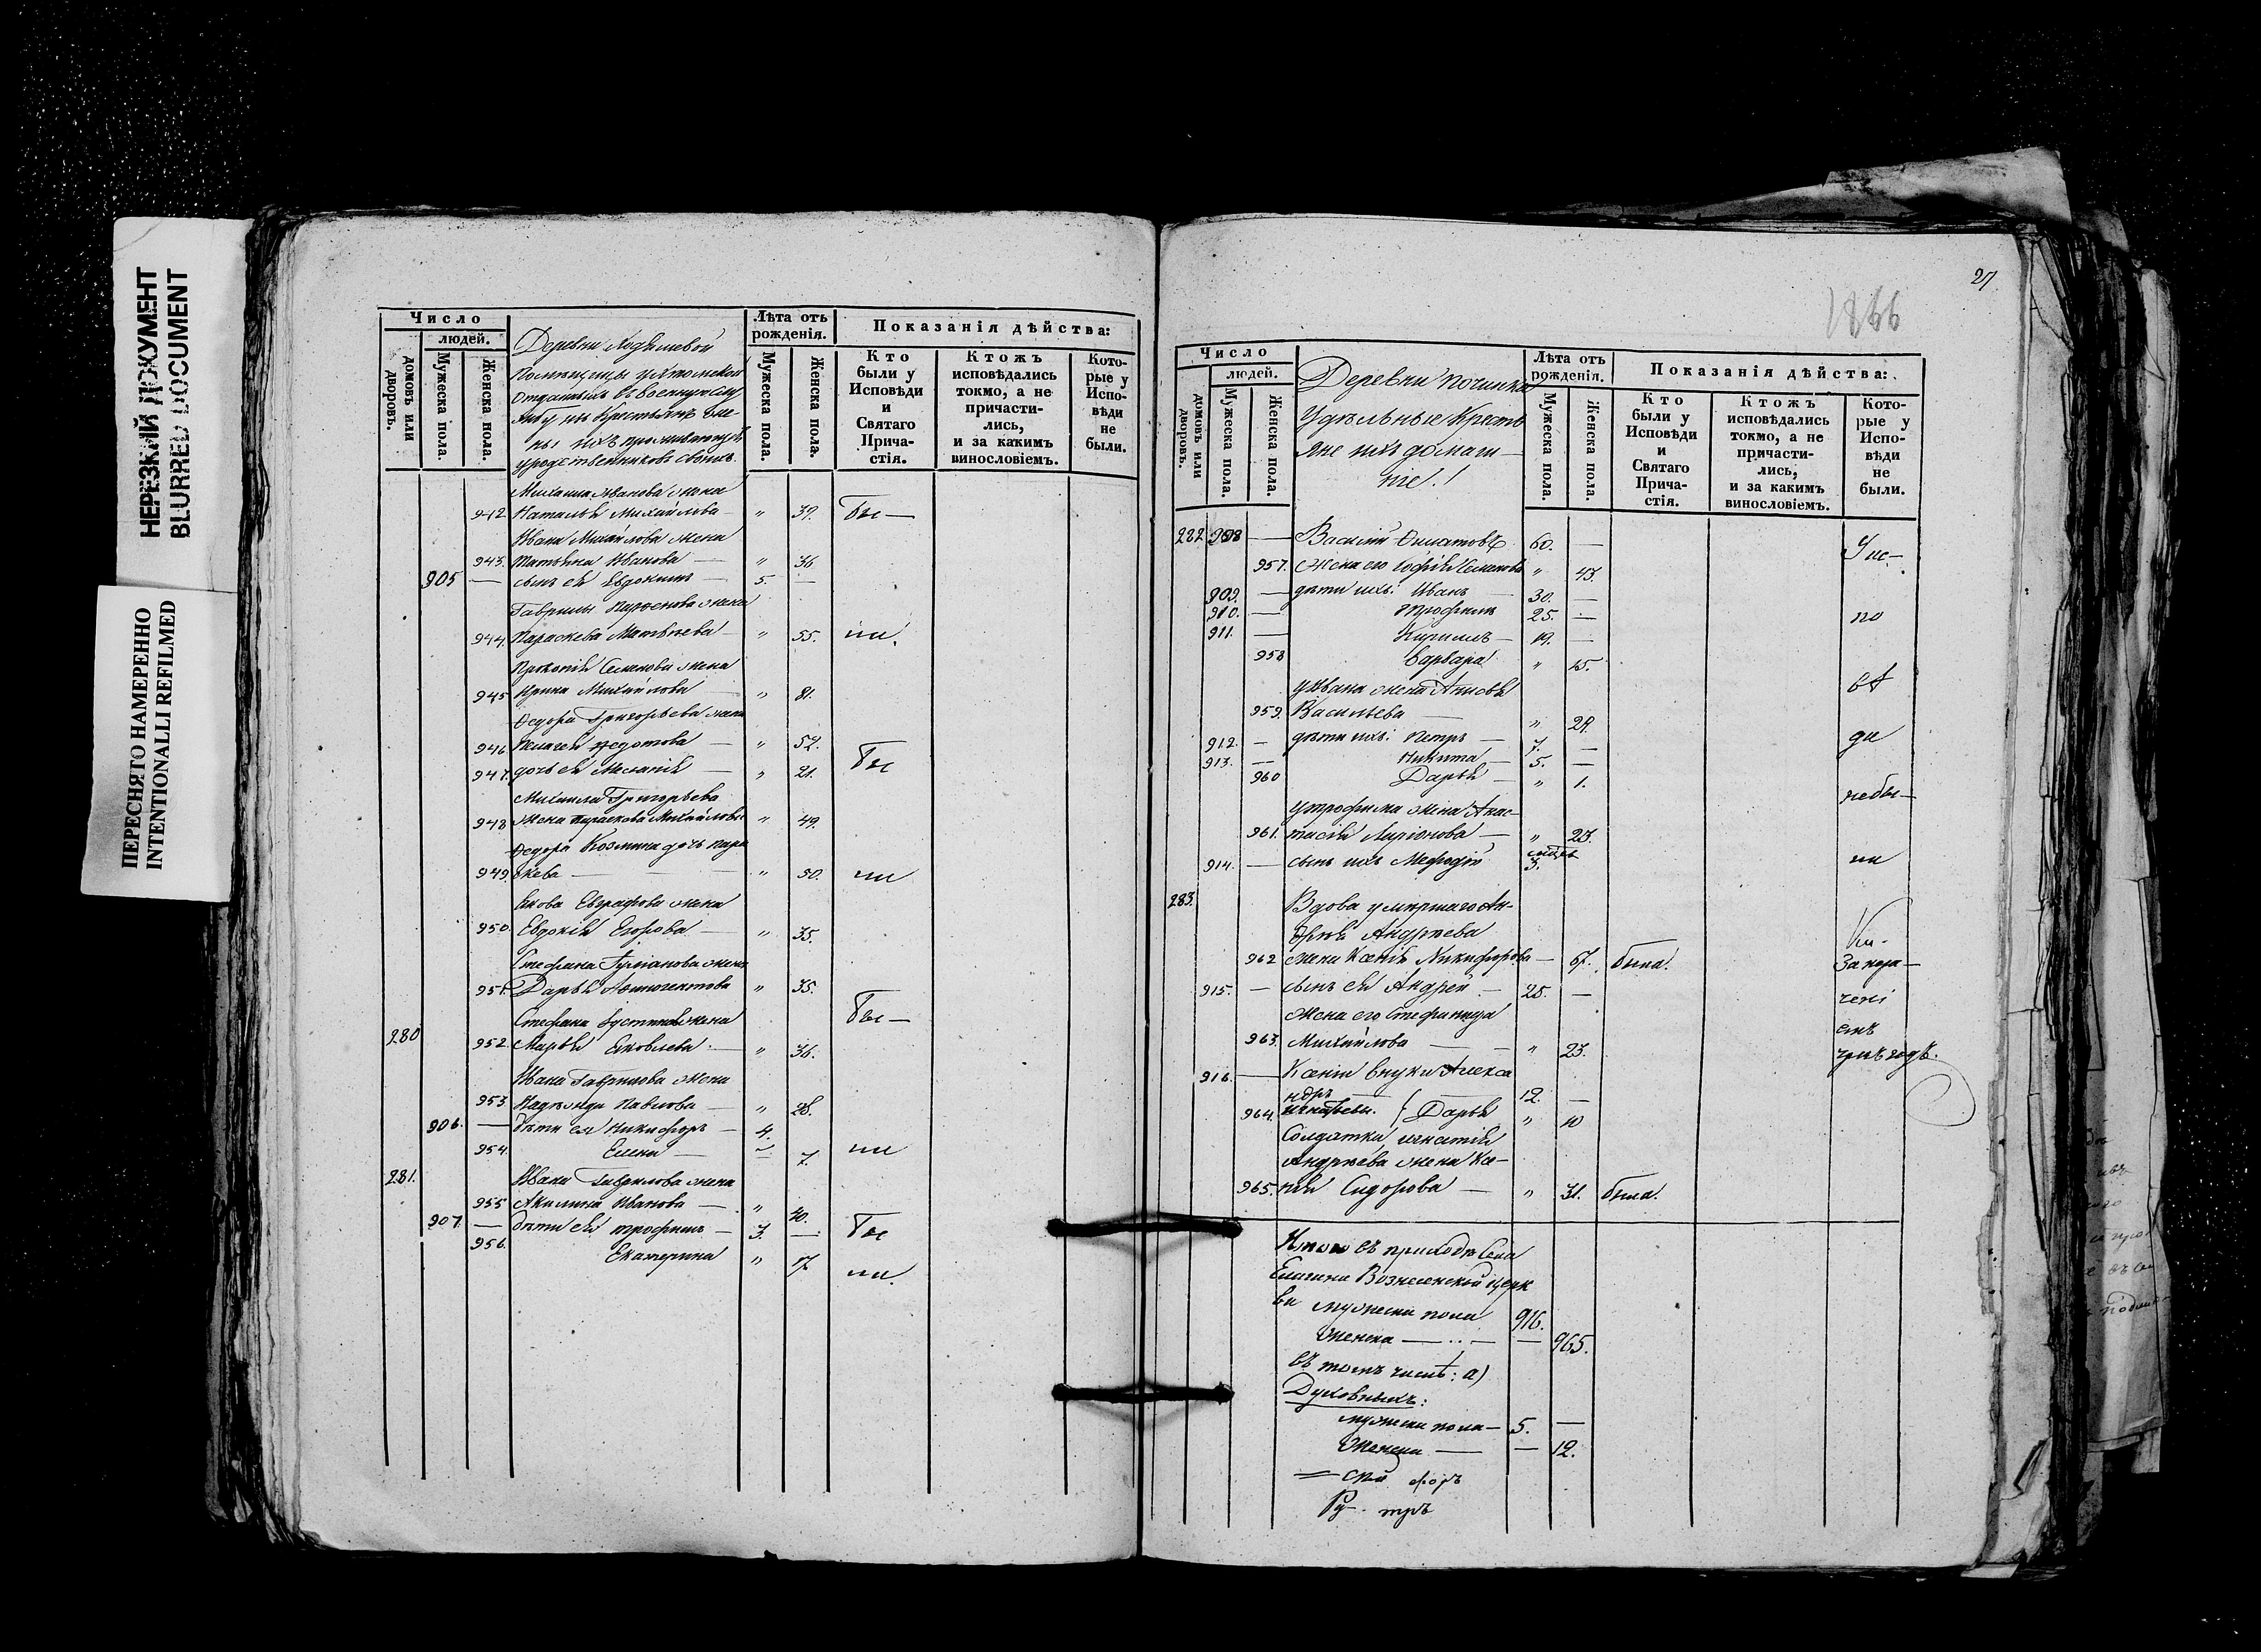 НЕРЕЗКИЙ ДОКУМЕНТ
BLURRED DOCUMENT
ПЕРЕСНЯТО НАМЕРЕННО
INTENTIONALLI REFILMED
Число
людей.
домовъ или дворовъ.
Мужеска пола.
Женска пола.
Деревни
Помѣщицы
отданныхъ въ военную слу
жбу изъ крестьянъ же
ны ихъ проживающія
у родственниковъ своихъ.
Лѣта отъ рожденія.
Мужеска пола.
Женска пола.
Показанія дѣйства:
Кто были у Исповѣди и Святаго Прича- стія.
Ктожъ исповѣдались токмо, а не причасти- лись, и за какимъ винословіемъ.
Кото- рые у Испо- вѣди не были.
Михаила Иванова жена
942 Наталья Михайлова — " 39. Бы—
Ивана Михайлова жена
943. Татьяна Иванова — " 36
905 — сынъ ея Евдокимъ — 5. —
Гаврилы Парфенова жена
944. Параскева Матвѣева — " 55. ли.
Прокопія Семенова жена
945 Ирина Михайлова — " 81.
Ѳедора Григорьева жена
946. Пелагея Ѳедотова — " 52.
947. дочь ея Меланія — " 21. Бы
Михаила Григорьева
948 жена Параскева Михайлова " 49.
Ѳедора Козмина дочь Пара
949. скева — " 50. ли
Якова Евграфова жена
950. Евдокія Егорова — " 35.
Стефана жена
951. Дарья " 35.
Стефана жена Бы—
280 952. Марья Яковлева — " 36.
Ивана Гаврилова жена
953. Надежда Павлова — " 28.
906. — дѣти ея Никифоръ — 4.
954. Елена — 7. ли
281. Ивана Гаврилова жена
955 Акилина Иванова — " 40.
907. — дѣти ея Трофимъ — 3. — Бы
956. Екатерина " 17 ли.
27
1866
Число
людей.
домовъ или дворовъ.
Мужеска пола.
Женска пола.
Деревни Починка
Удѣльные Кресть
яне ихъ домаш—
ніе!
Лѣта отъ рожденія.
Мужеска пола.
Женска пола.
Показанія дѣйства:
Кто были у Исповѣди и Святаго Прича- стія.
Ктожъ исповѣдались токмо, а не причасти- лись, и за какимъ винословіемъ.
Кото- рые у Испо- вѣди не были.
282 908 — Василій 60. — У ис—
957. жена его Софія Семенова " 43.
909. — дѣти ихъ: Иванъ — 30. —
910. — Трофимъ 25. — по
911. — Кириллъ — 19. —
958 Варвара " 15.
У Ивана жена вѣ
959. Васильева — " 29.
912. — дѣти ихъ: Петръ — 7. — ди
913. — Никита — 5. —
960 Дарья — " 1. небы—
У Трофима жена Анас—
961. тасія Ларіонова — " 23.
914. — сынъ ихъ Меѳодій 3. ли
283. Вдова умершаго Ан—
дрея Андреева
962 жена Ксенія Никифорова — 67. была.
915. — сынъ ея Андрей — 25. —
жена его Стефанида
963. Михайлова — " 23.
916. — Ксеніи внуки Алекса
ндръ 12. —
964. Игнатьевы. { Дарья " 10
Солдатка, Игнатія
Андреева жена Ксе—
965. нія Сидорова — " 31. была.
Итого въ приходѣ Села
Елагина Вознесенской церк
ви мужеска пола 916.
женска — — 965.
въ томъ числѣ: а)
Духовныхъ:
мужеска пола— 5. —
женска — — 12.